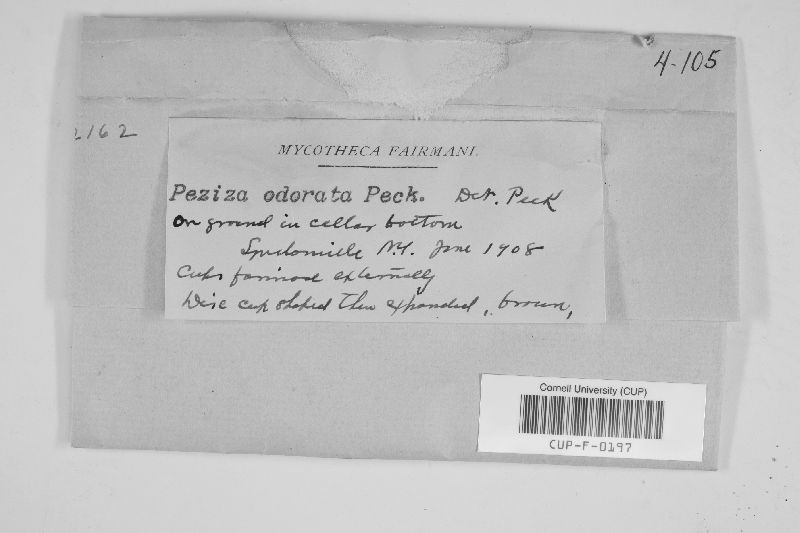 4-105
2162
MYCOTHECA FAIRMANI.
Peziza odorata Peck. Det. Peck
On ground in cellar bottom
Lyndonville N.Y. June 1908
Cups farinose externally
Disc cup shaped then expanded, brown,
Cornell University (CUP)
CUP-F-0197